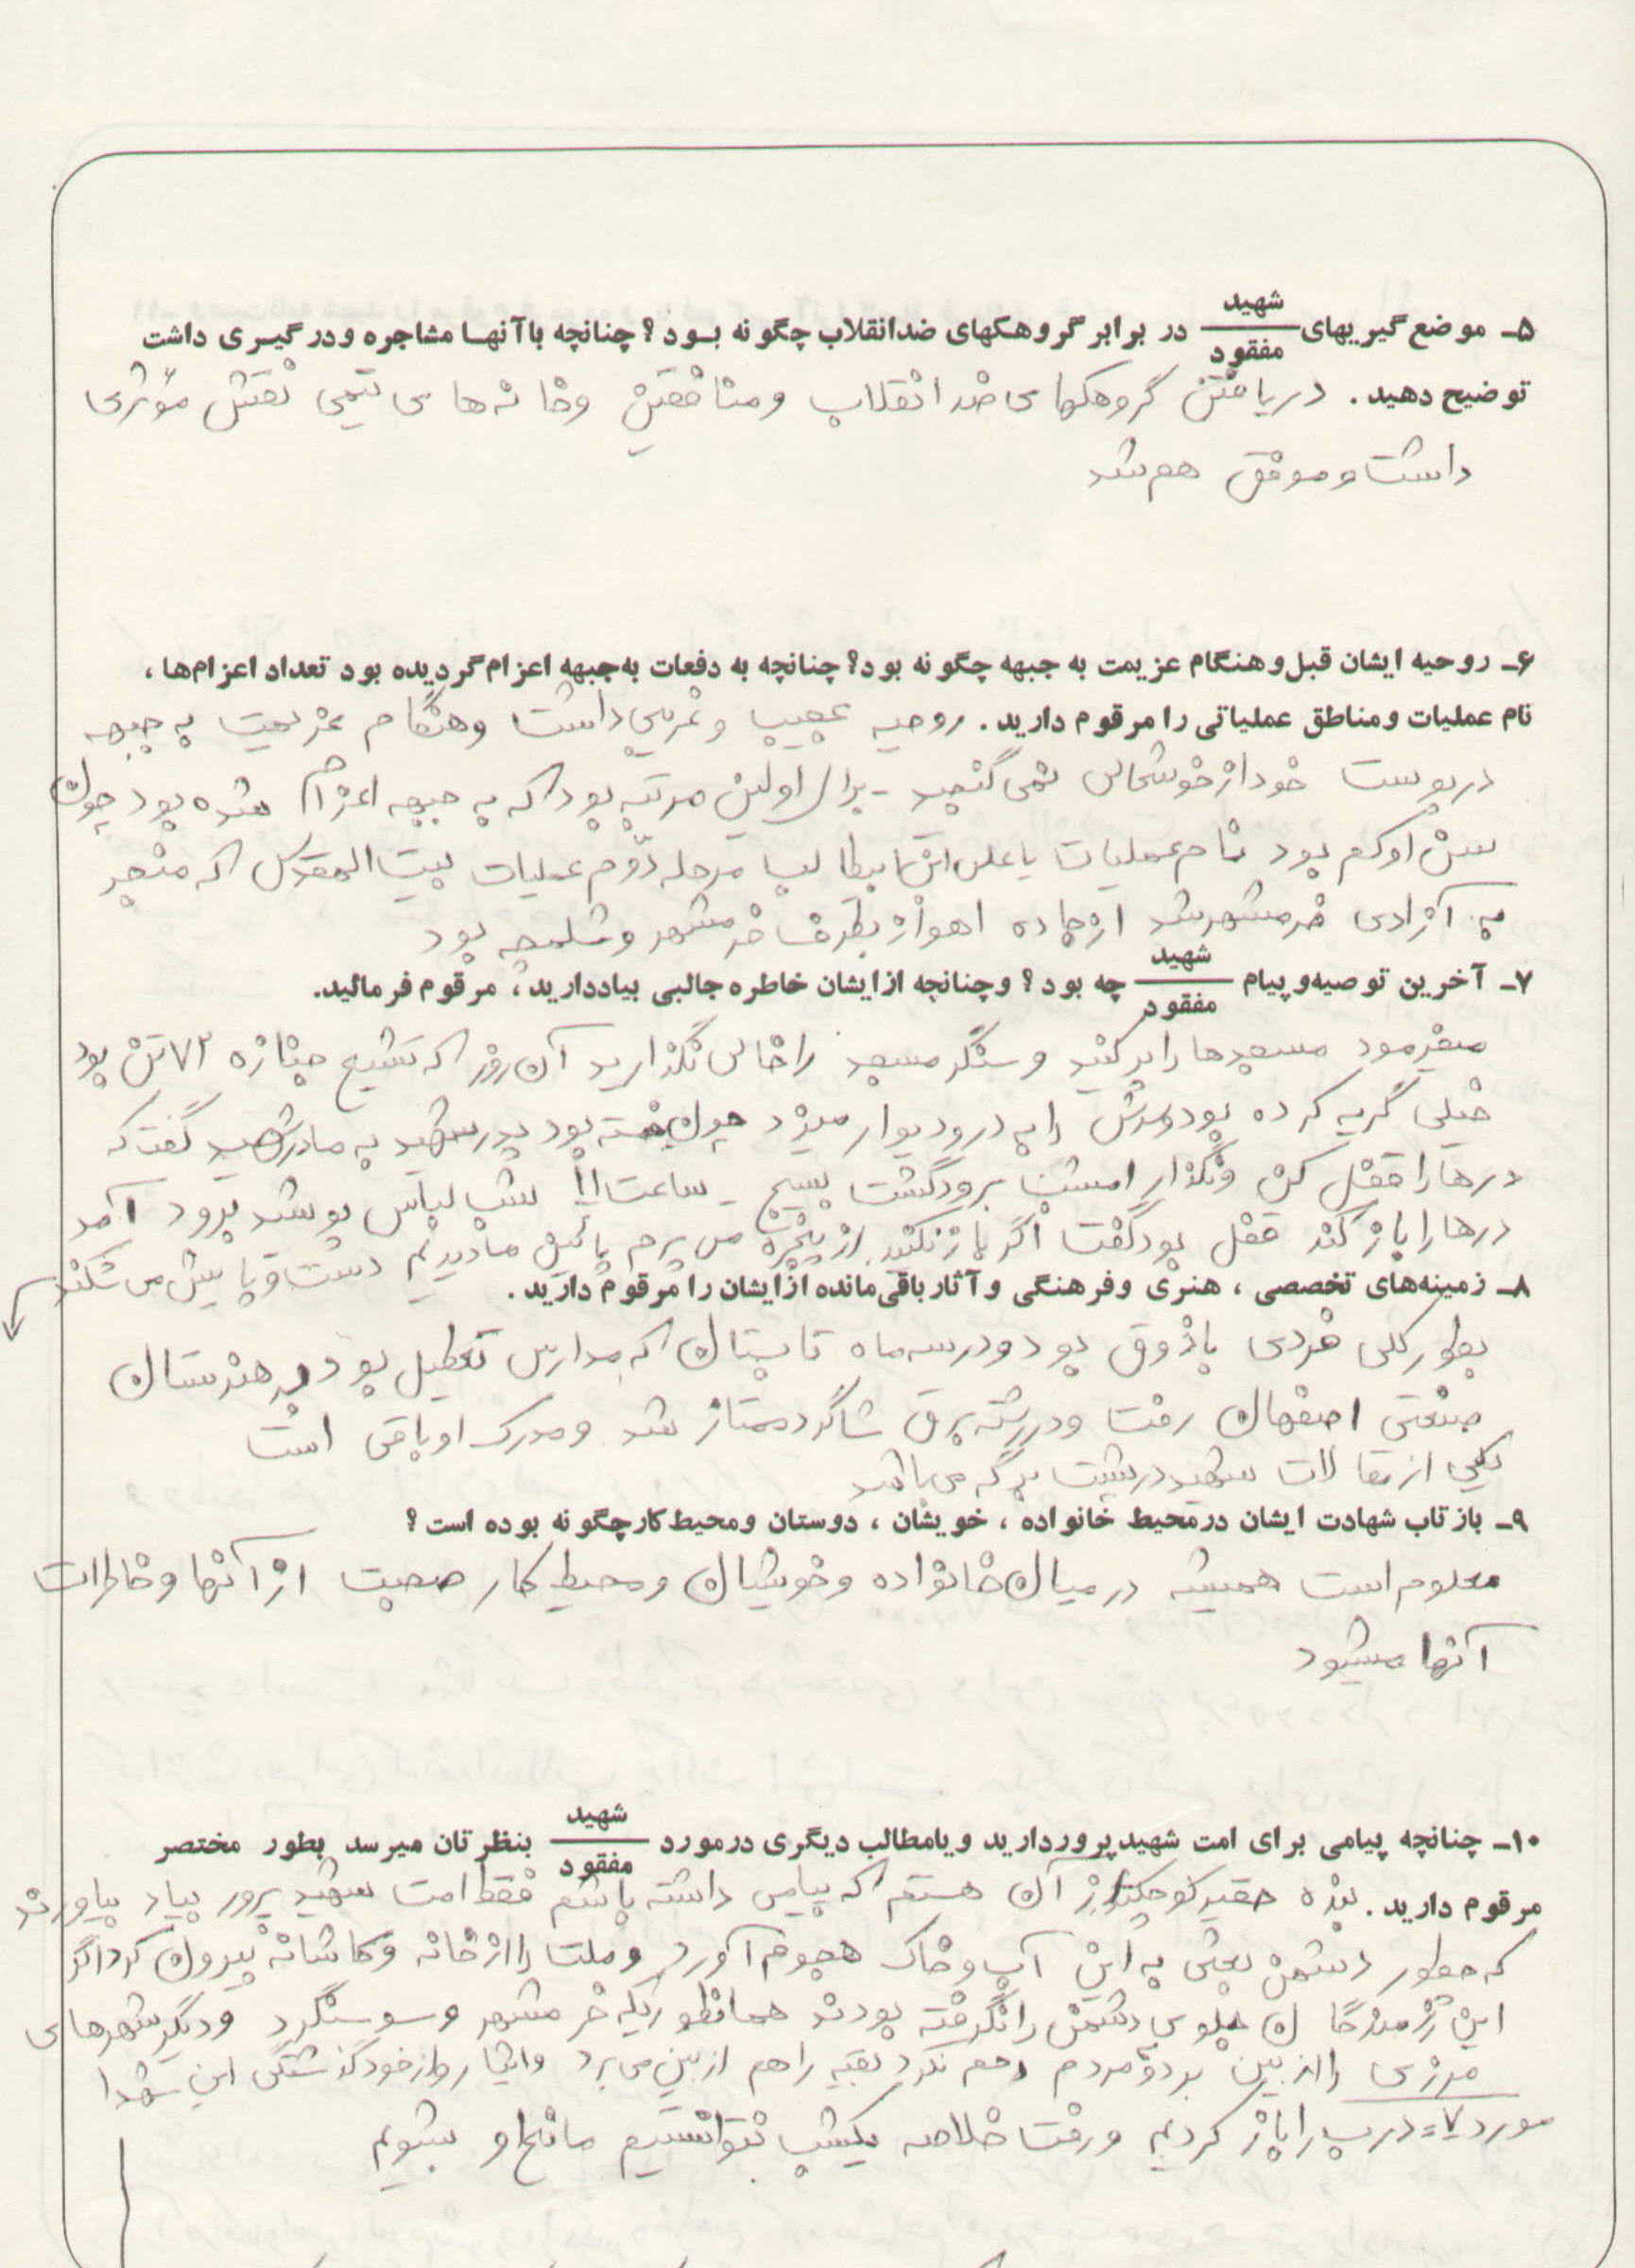 ۵ـ موضع‌گیریهای شهید/مفقود در برابر گروهکهای ضدانقلاب چگونه بود؟ چنانچه با آنها مشاجره و درگیری داشت
توضیح دهید. دریافتن گروهکهای ضد انقلاب و منافقین و خانه‌های تیمی نقش مؤثری
داشت و موفق هم شد
۶ـ روحیه ایشان قبل و هنگام عزیمت به جبهه چگونه بود؟ چنانچه به دفعات به جبهه اعزام گردیده بود تعداد اعزام‌ها،
نام عملیات و مناطق عملیاتی را مرقوم دارید. روحیه عجیب و غریبی داشت و هنگام عزیمت به جبهه
در پوست خود از خوشحالی نمی گنجید - برای اولین مرتبه بود که به جبهه اعزام شده بود چون
سن او کم بود نام عملیات یا علی ابن ابیطالب مرحله دوّم عملیات بیت المقدس که منجر
به آزادی خرمشهر شد از جاده اهواز بطرف خرمشهر و شلمچه بود
۷ـ آخرین توصیه و پیام شهید/مفقود چه بود؟ و چنانچه از ایشان خاطره جالبی بیاد دارید، مرقوم فرمائید.
میفرمود مسجدها را پر کنید و سنگر مسجد را خالی نگذارید آن روز که تشیع جنازه ۷۲ تن بود
خیلی گریه کرده بود و سرش را به در و دیوار میزد چون خسته بود پدر شهید به مادر شهید گفت که
درها را قفل کن و نگذار امشب برود گشت بسیج - ساعت ۱۱ شب لباس پوشید برود آمد
درها را باز کند قفل بود گفت اگر باز نکنید از پنجره می پرم پائین ما دیدیم دست و پایش می شکند
۸ـ زمینه‌های تخصصی، هنری و فرهنگی و آثار باقی‌مانده از ایشان را مرقوم دارید.
بطور کلی فردی با ذوق بود و در سه ماه تابستان که مدارس تعطیل بود در هنرستان
صنعتی اصفهان رفت و در رشته برق شاگرد ممتاز شد و مدرک او باقی است
یکی از مقالات شهید در پشت برگه می باشد
۹ـ بازتاب شهادت ایشان در محیط خانواده، خویشان، دوستان و محیط کار چگونه بوده است؟
معلوم است همیشه در میان خانواده و خویشان و محیط کار صحبت از آنها و خاطرات
آنها میشود
۱۰ـ چنانچه پیامی برای امت شهیدپرور دارید و یا مطالب دیگری در مورد شهید/مفقود بنظرتان میرسد بطور مختصر
مرقوم دارید. بنده حقیر کوچکتر از آن هستم که پیامی داشته باشم فقط امت شهید پرور بیاد بیاورند
که چطور دشمن بعثی به این آب و خاک هجوم آورد و ملت را از خانه و کاشانه بیرون کرد اگر
این رزمندگان جلوی دشمن را نگرفته بودند همانطوریکه خرمشهر و سوسنگرد و دیگر شهرهای
مرزی را از بین برد و مردم رحم نکرد بقیه را هم از بین می برد و ایثار و از خود گذشتگی این شهدا
مورد ۷ = درب را باز کردیم و رفت خلاصه یکشب نتوانستیم مانع او بشویم